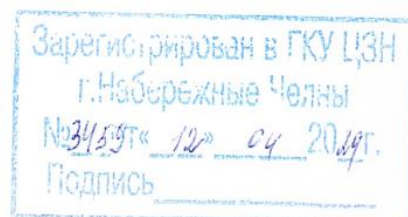 Зарегистрирован в ГКУ ЦЗН
г.Набережные Челны
№3459т« 12» 04 2019г.
Подпись